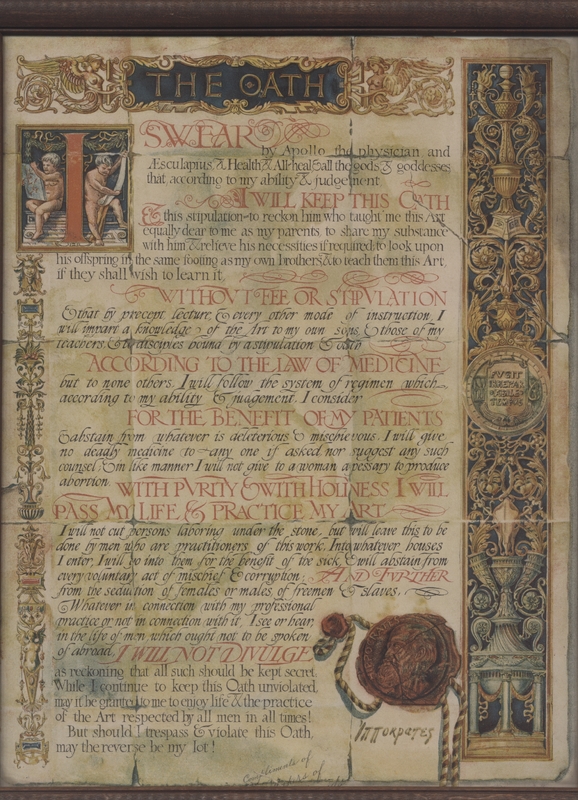 THE OATH
I SWEAR
by Apollo the physician and
Æsculapius, & Health & All-heal & all the gods & goddesses
that according to my ability & judgement
I WILL KEEP THIS OATH
& this stipulation-to reckon him who taught me this Art
equally dear to me as my parents to share my substance
with him & relieve his necessities if required, to look upon
his offspring in the same footing as my own brothers, & to teach them this Art,
if they shall wish to learn it,
WITHOVT FEE OR STIPVLATION
& that by precept, lecture, & every other mode of instruction, I
will impart a knowledge of the Art to my own sons, & those of my
teachers, & to disciples bound by a stipulation & oath
ACCORDING TO THE LAW OF MEDICINE
but to none others. I will follow the system of regimen which
according to my ability & judgement, I consider
FOR THE BENEFIT OF MY PATIENTS
& abstain from whatever is deleterious & mischievous. I will give
no deadly medicine to any one if asked, nor suggest any such
counsel & in like manner I will not give to a woman a pessary to produce
abortion. WITH PVRITY & WITH HOLINESS I WILL
PASS MY LIFE & PRACTICE MY ART
I will not cut persons laboring under the stone, but will leave this to be
done by men who are practitioners of this work. Into whatever houses
I enter, I will go into them for the benefit of the sick, & will abstain from
every voluntary act of mischief & corruption; AND FVRTHER
from the seduction of females or males, of freemen & slaves.
Whatever in connection with my professional
practice or not in connection with it, I see or hear,
in the life of men which ought not to be spoken
of abroad, I WILL NOT DIVULGE
as reckoning that all such should be kept secret.
While I continue to keep this Oath unviolated,
may it be granted to me to enjoy life & the practice
of the Art respected by all men in all times!
But should I trespass & violate this Oath,
may the reverse be my lot!
Ιπποκρατες
Complements of